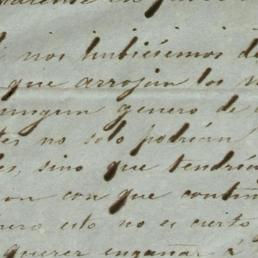 nos hubiésemos d
que arrojan los
ningun genero de
tes no solo podrian
es, sino que tendria
on con que contin
pero esto no es cierto
querer engañar á